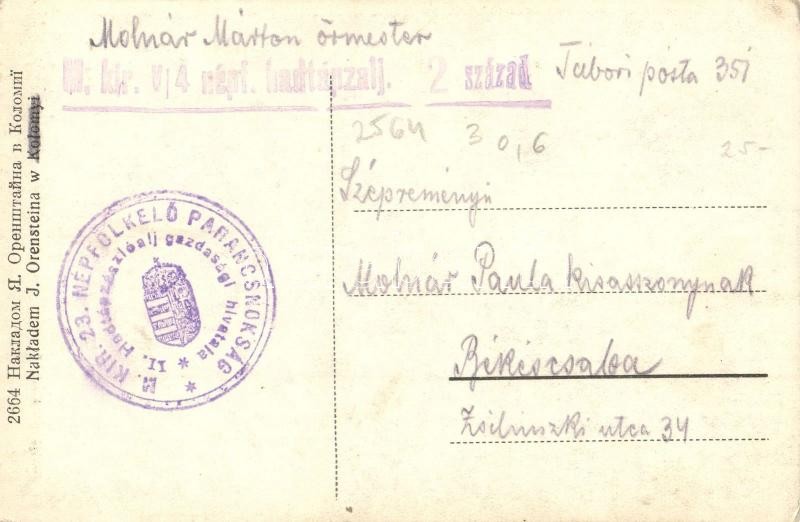 Molnár Márton őrmester
M. kir. V/4 népf. hadtápzalj. 2 század
Tábori posta 351
2564 3 0,6 25-
Szépreményű
Molnár Paula kisasszonynak
Békéscsaba
Zsilinszki utca 34
M. KIR. 23. NÉPFÖLKELŐ PARANCSNOKSÁG *
II. Hadtápzászlóalj gazdasági hivatala *
2664 Накладом Я. Оренштайна в Коломиї
Nakładem J. Orensteina w Kołomyi